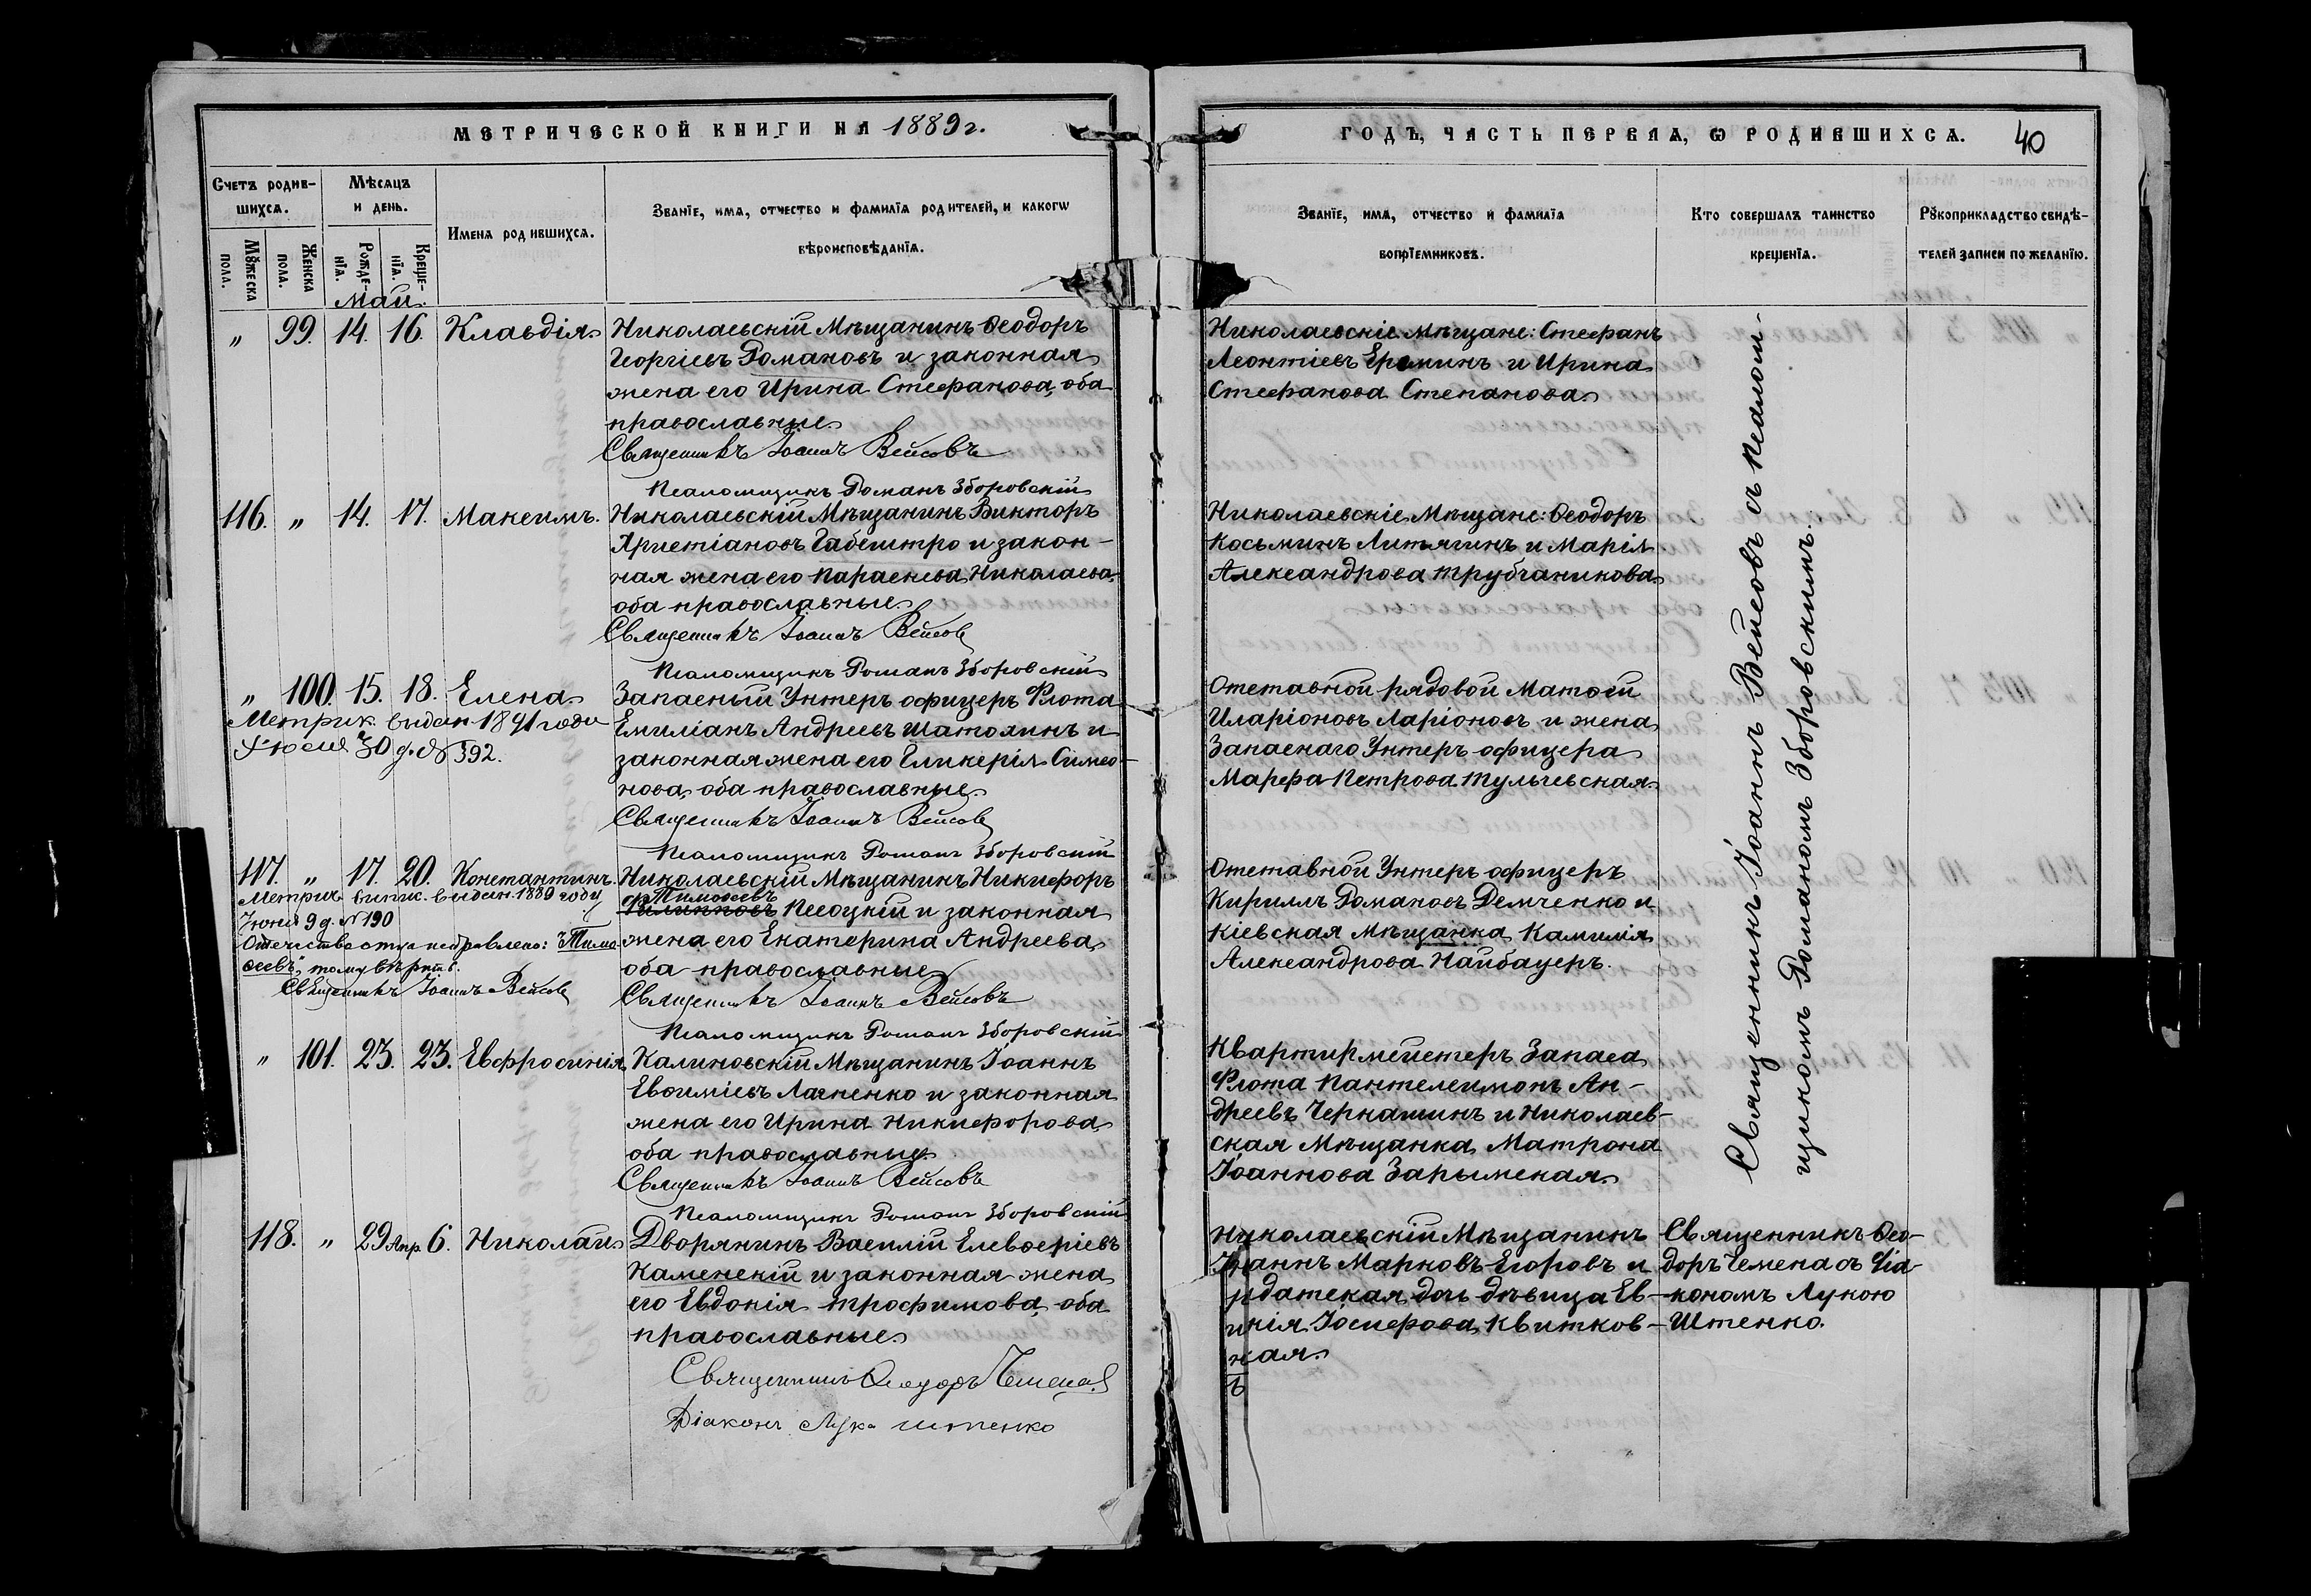 МЕТРИЧЕСКОЙ КНИГИ НА 1889 г.
Счетъ родив-
шихся.
Мѣсяцъ
и день.
Мужеска
пола.
Женска
пола.
Рожде-
нія.
Креще-
нія.
Имена родившихся.
Званіе, имя, отчество и фамилія родителей, и какого
вѣроисповѣданія.
Май.
„ 99. 14. 16. Клавдія
Николаевскій Мѣщанинъ Ѳеодоръ
Георгіевъ Романовъ и законная
жена его Ирина Стефанова, оба
православные
Священникъ Іоаннъ Вейсовъ
Псаломщикъ Романъ Зборовскій
116. „ 14. 17. Максимъ.
Николаевскій Мѣщанинъ Викторъ
Христіановъ Габештро и закон-
ная жена его Параскева Николаева
оба православные
Священникъ Іоаннъ Вейсовъ
Псаломщикъ Романъ Зборовскій
„ 100. 15. 18. Елена
Метрик. выдан 1891 года
Іюля 30 д. № 392.
Запасный Унтеръ офицеръ Флота
Емиліанъ Андреевъ Шатохинъ и
законная жена его Гликерія Симео-
нова, оба православные
Священникъ Іоаннъ Вейсовъ
Псаломщикъ Романъ Зборовскій
117. „ 17. 20. Константинъ.
Метрич. выпис. выдан. 1889 году
Іюня 9 д. № 190
Отечество отца исправлено: „Тимо
ѳеевъ“, тому вѣрить.
Священникъ Іоаннъ Вейсовъ
Николаевскій Мѣщанинъ Никифоръ
Тимоѳеевъ
Филипповъ Песоцкій и законная
жена его Екатерина Андреева,
оба православные
Священникъ Іоаннъ Вейсовъ
Псаломщикъ Романъ Зборовскій
„ 101. 23. 23. Евфросинія
Калиновскій Мѣщанинъ Іоаннъ
Евѳиміевъ Лагненко и законная
жена его Ирина Никифорова
оба православные
Священникъ Іоаннъ Вейсовъ
Псаломщикъ Романъ Зборовскій
118. „ 29 Апр. 6. Николай
Дворянинъ Василій Елевѳеріевъ
Каменскій и законная жена
его Евдокія Трофимова, оба
православные
Священникъ Ѳеодоръ Чемена
Діаконъ Лука Штенко
ГОДЪ, ЧАСТЬ ПЕРВАЯ, Ѡ РОДИВШИХСЯ. 40
Званіе, имя, отчество и фамилія
воспріемниковъ.
Кто совершалъ таинство
крещенія.
Рукоприкладство свидѣ-
телей записи по желанію.
Николаевскіе Мѣщане: Стефанъ
Леонтіевъ Ереминъ и Ирина
Стефанова Степанова
Николаевскіе Мѣщане: Ѳеодоръ
Косьминъ Литягинъ и Марія
Александрова Трубчаникова
Отставной рядовой Матѳей
Иларіоновъ Ларіоновъ и жена
Запаснаго Унтеръ офицера
Марфа Петрова Тульчевская
Отставной Унтеръ офицеръ
Кириллъ Романовъ Демченко и
Кіевская Мѣщанка Камилія
Александрова Найбауеръ.
Квартирмейстеръ Запаса
Флота Пантелеимонъ Ан-
дреевъ Чернашинъ и Николаев-
ская Мѣщанка Матрона
Іоаннова Зарымская
Николаевскій Мѣщанинъ
Іоаннъ Марковъ Егоровъ и
лдатская дочь дѣвица Ев-
нія Іосифова Квитков-
кая
Священникъ Іоаннъ Вейсовъ съ псалом-
щикомъ Романомъ Зборовскимъ.
Священникъ Ѳео-
доръ Чемена съ діа-
кономъ Лукою
Штенко.